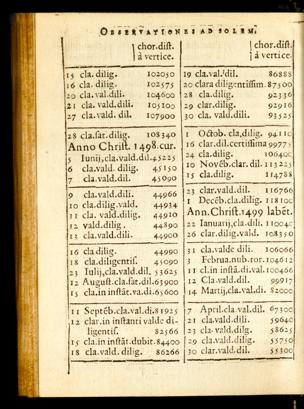 OBSERVATIONES AD SOLEM.
chor.dist.
à vertice.
15 cla. dilig. 102050
16 cla. dilig. 102575
20 cla.val.dili. 104600
21 cla. vald. dili. 105100
27 cla. vald. dil. 107900
28 cla.sat. dilig. 108340
Anno Christ. 1498. cur.
5 Iunij, cla.vald. dil. 45225
6 cla.vald. dilig. 45150
7 cla.vald. dil. 45090
9 cla.vald. dili. 44966
10 cla.dilig.vald. 44934
11 cla. vald. dilig. 44910
12 vald. dilig. 44890
13 cla.vald. dili. 44900
16 cla dilig. 44990
18 cla.diligentiss. 45090
23 Iulij, cla.vald. dil. 53625
12 August. cla.sat.dil. 63900
15 cla.in instāt. va.di. 65600
11 Septēb.cla.va.di. 81925
12 clar.in instanti valde di-
ligentiss. 82566
15 cla.in instāt.dubit. 84400
18 cla.vald. dilig. 86266
chor.dist.
à vertice.
19 cla.val.dil. 86888
20 clara diligentissim. 87500
28 cla. dilig. 92336
29 clar. dilig. 92916
30 cla. vald. dili. 93525
1 Octob. cla, dilig. 94110
16 clar. dil. certissima 99775
24 cla. dilig. 106400
10 Novēb. clar. dil. 113225
15 cla. dilig. 114788
23 clar. vald. dil. 116766
1 Decēb. cla. dilig. 118100
Ann. Christ. 1499 labēt.
22 Ianuarij, cla. dili. 110040
26 clar. dilig. val. 108350
31 cla. valde dili. 106066
3 Februa. nub. ror. 104612
11 cl. in instā.di.val 100466
12 Cla. vald. dil. 99917
14 Martij, cla.val.di. 82000
7 April. cla. val. dil. 67300
21 cla. vald. dili. 59640
23 cla. vald. dilg. 58625
29 cla. vald. dilig. 55750
30 clar. vald. dil. 55300